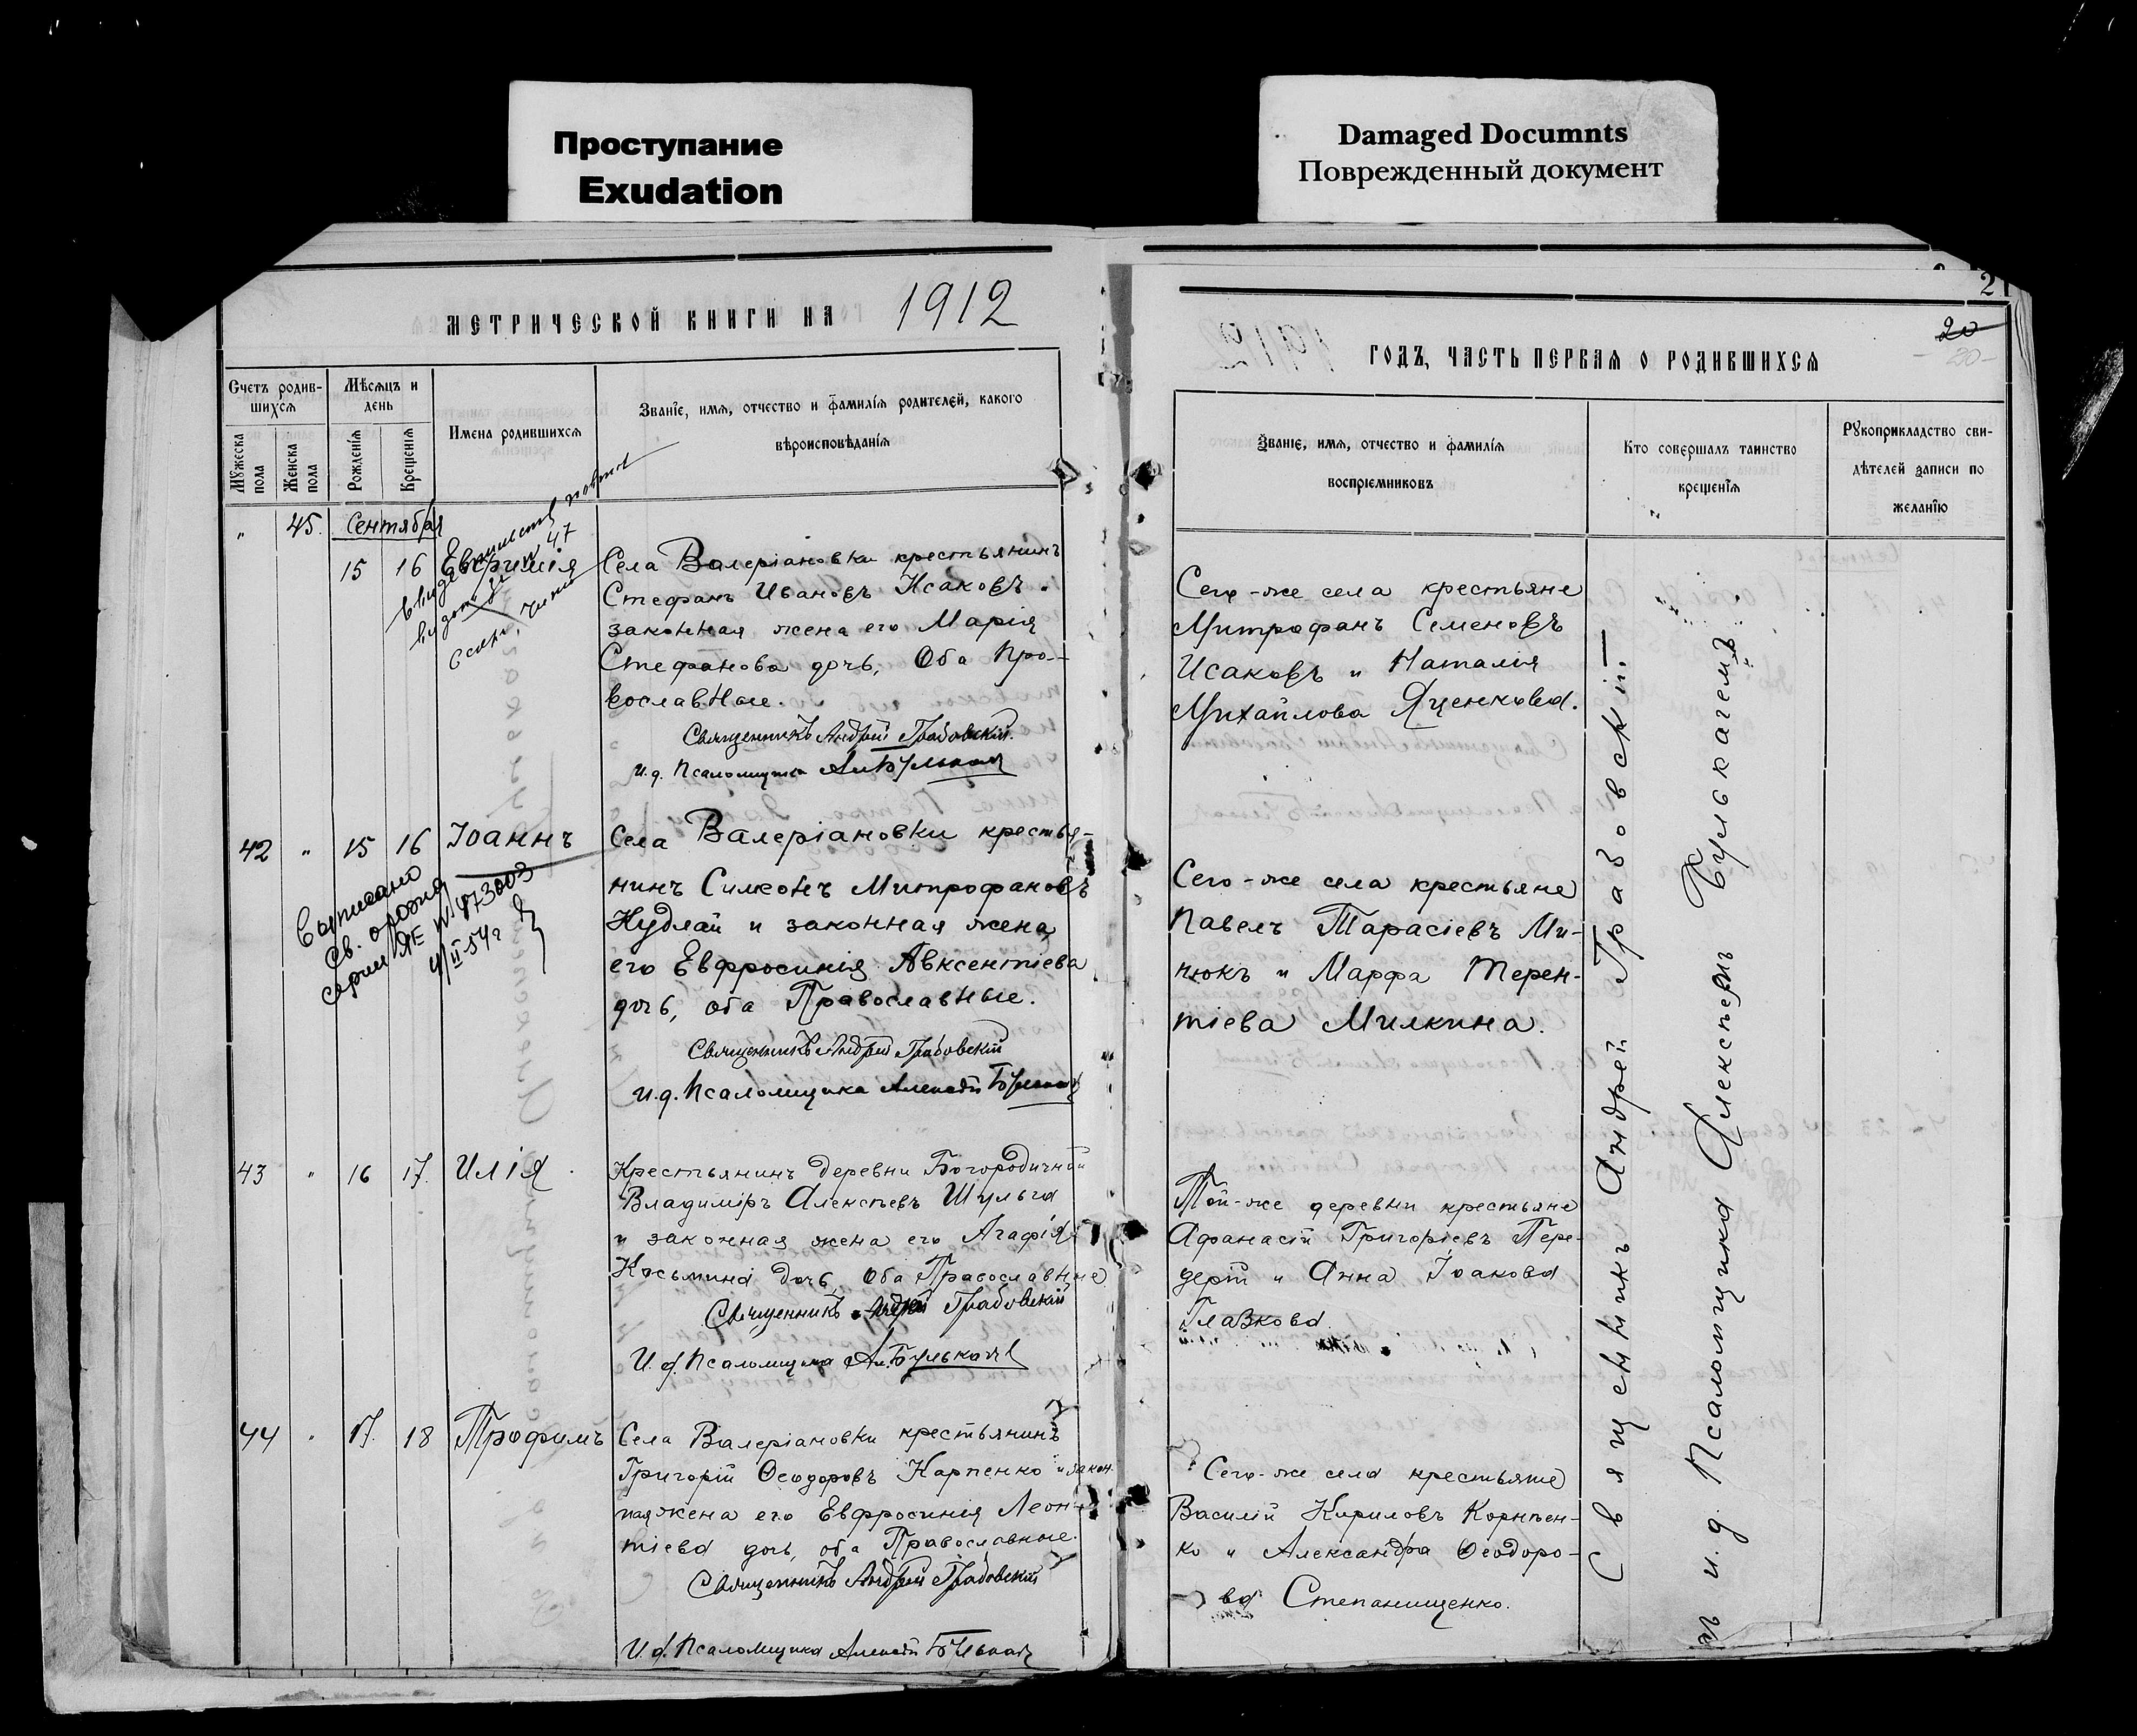 Проступание
Exudation
Damaged Documnts
Поврежденный документ
МЕТРИЧЕСКОЙ КНИГИ НА 1912
Счетъ родив-
шихся
Мѣсяцъ и
день
Имена родившихся
Званіе, имя, отчество и фамилія родителей, какого
вѣроисповѣданія
Мужеска
пола
Женска
пола
Рожденія
Крещенія
" 45. Сентября
15 16 Евфимія
Села Валеріановки крестьянинъ
Стефанъ Ивановъ Исаковъ.
законная жена его Марія
Стефанова дочь, Оба Про-
вославные.
Священникъ Андрей Грабовскій.
И.д. Псаломщика
42 " 15 16 Іоаннъ
Выписано
Св. о
серии ЯЕ № 473003
4/II-54г
Села Валеріановки крестья-
нинъ Симеонъ Митрофановъ
Кудлай и законная жена
его Евфросинія Авксентіева
дочь, оба Православные.
Священникъ Андрей Грабовскій
И.д. Псаломщика Алексѣй
43 " 16 17. Илія
Крестьянинъ деревни Богородичной
Владиміръ Алексѣевъ Шульга
и законная жена его Агафія
Косьмина дочь, Оба Православные
Священникъ Андрей Грабовскій
И.д. Псаломщика
44 " 17. 18 Трофимъ
Села Валеріановки крестьянинъ
Григорій Ѳеодоровъ Карпенко и закон.
ная жена его Евфросинія Леон-
тіева дочь, оба Православные.
Священникъ Андрей Грабовскій
И.д. Псаломщика Алексѣй
21
20
-20-
ГОДЪ, ЧАСТЬ ПЕРВАЯ О РОДИВШИХСЯ
Званіе, имя, отчество и фамилія
воспріемниковъ
Кто совершалъ таинство
крещенія
Рукоприкладство сви-
дѣтелей записи по
желанію
Сего-же села крестьяне
Митрофанъ Семеновъ
Исаковъ и Наталія
Михайлова Яценкова.
Сего-же села крестьяне
Павелъ Тарасіевъ Ми-
нюкъ и Марфа Терен-
тіева Милкина.
Той-же деревни крестьяне
Афанасій Григоріевъ Пере-
дерій и Анна Іоакова
Глазкова
Сего-же села крестьяне
Василій Кириловъ Корнѣен-
ко и Александра Ѳеодоро-
ва Степанищенко.
Священникъ Андрей Грабовскій.—
и.д. Псаломщика Алексѣемъ